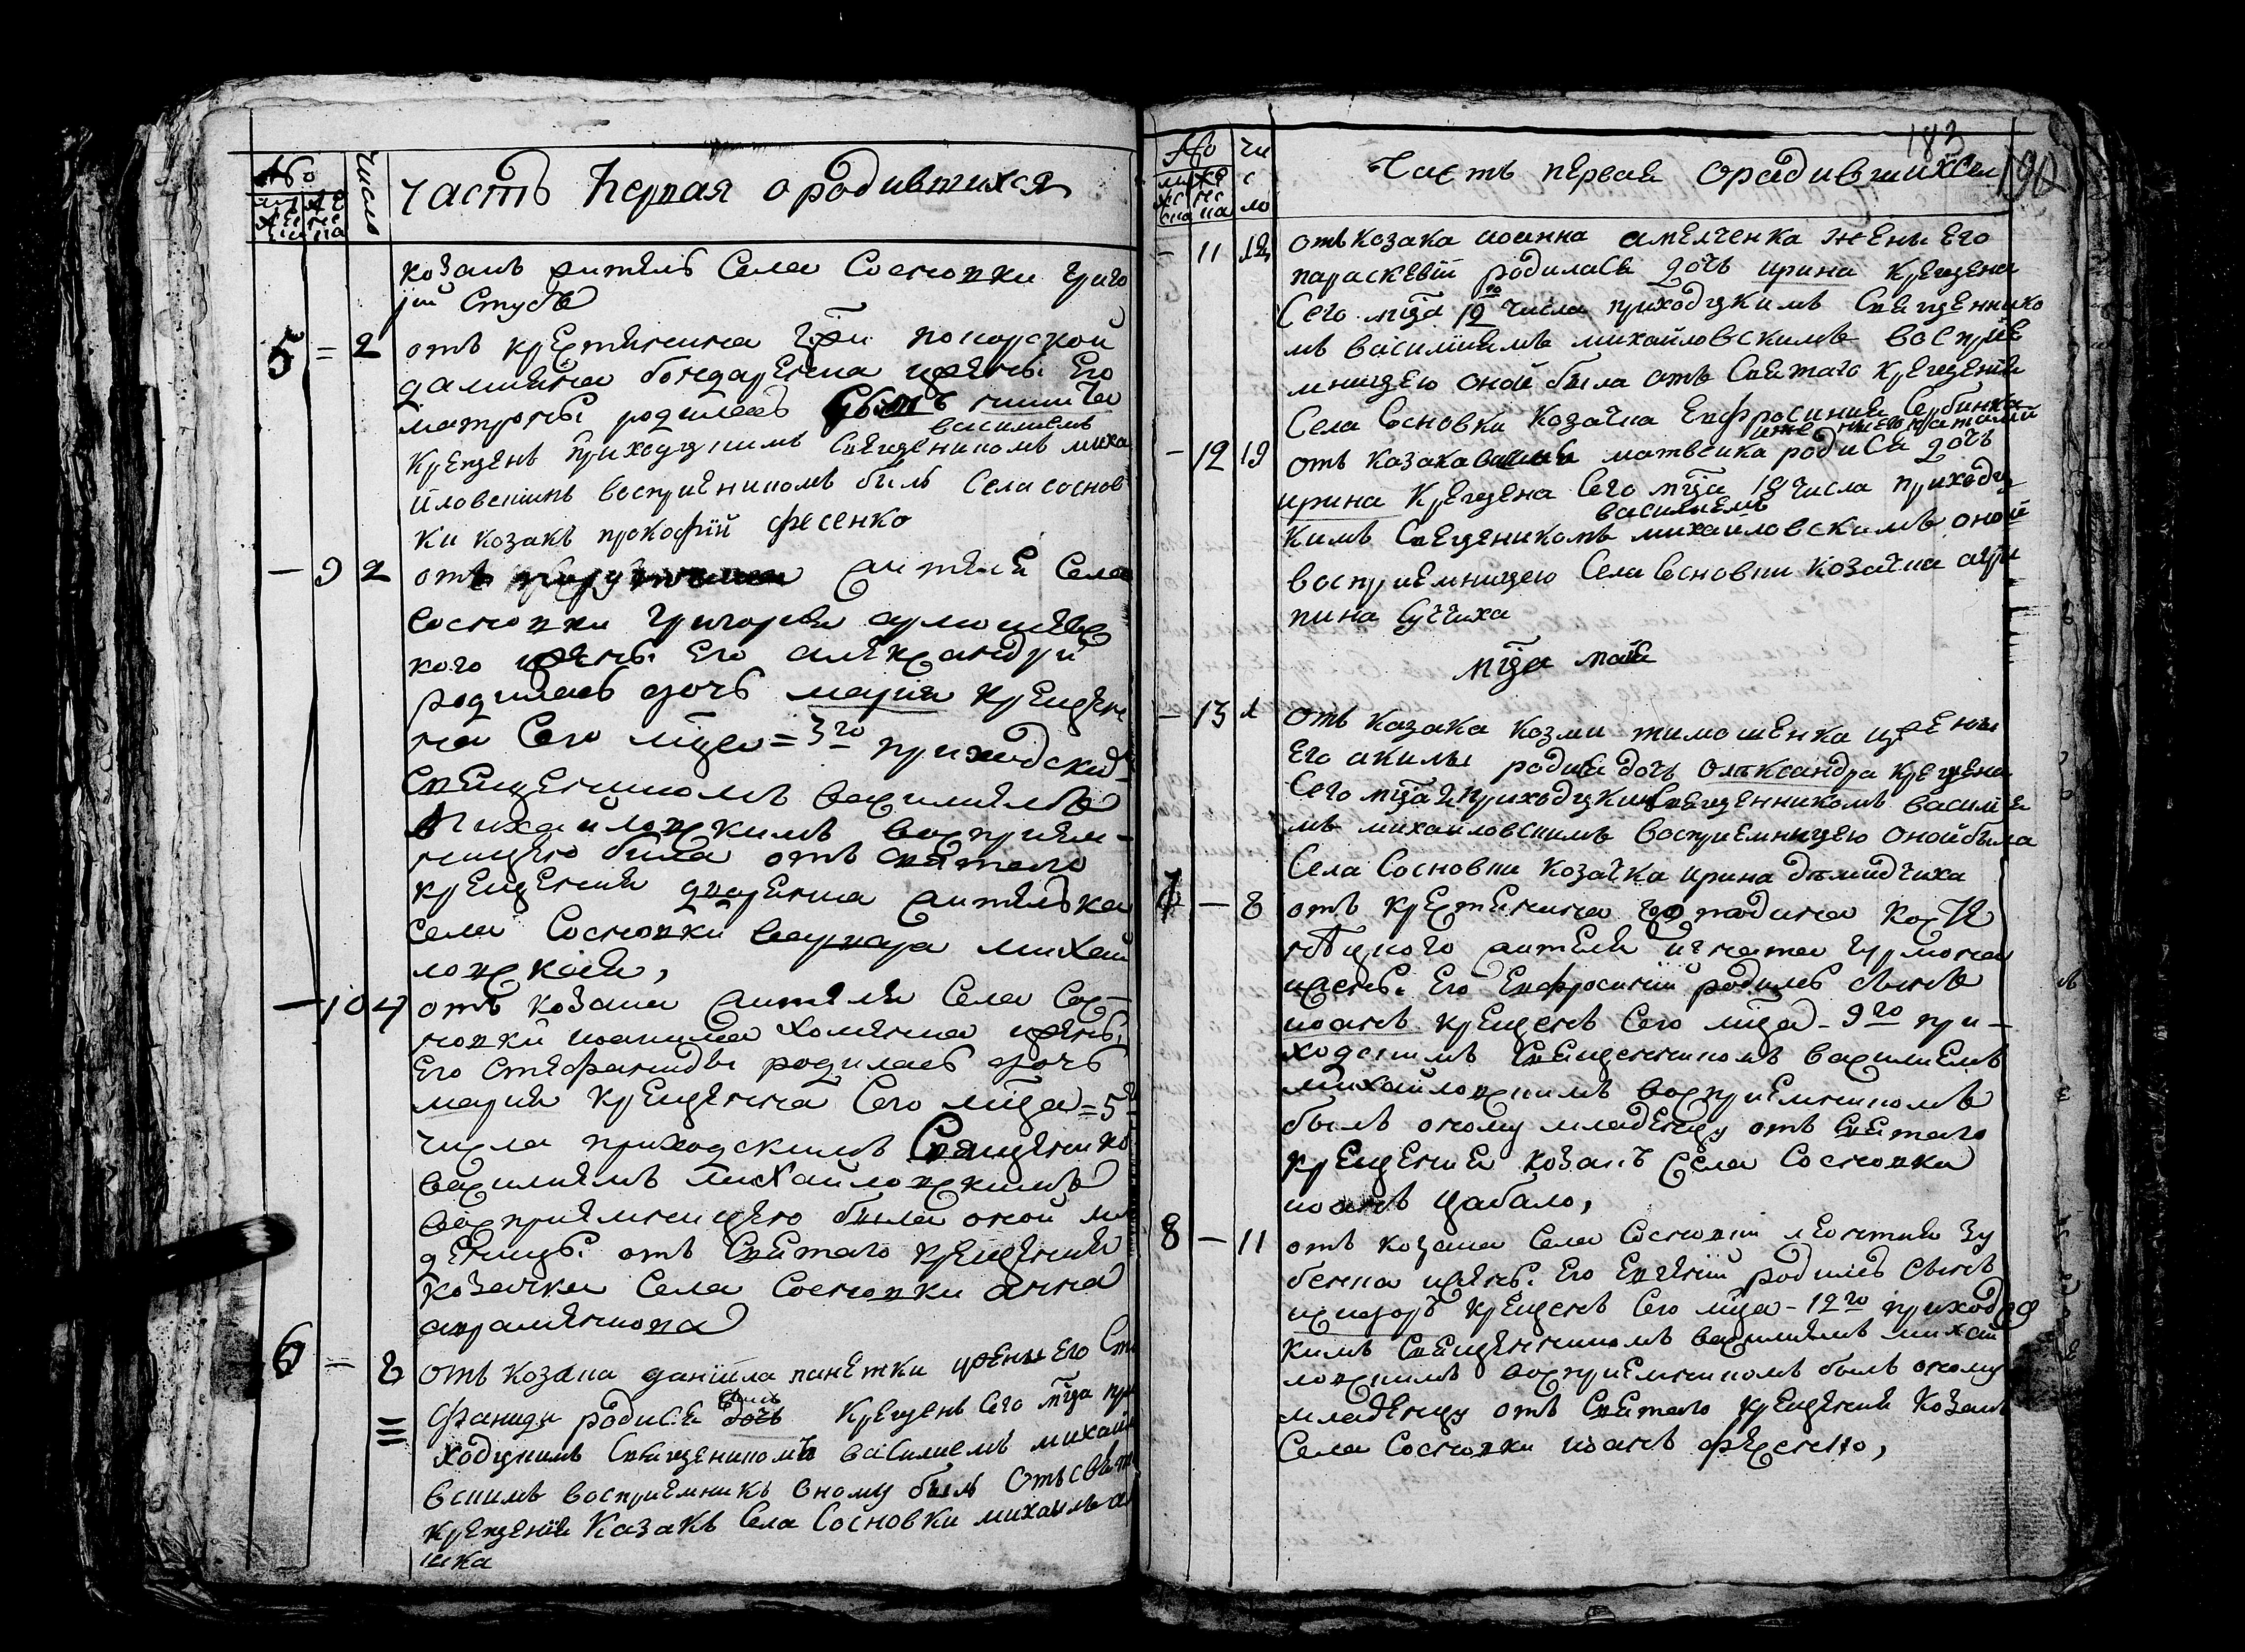 №
число
часть первая о родившихся
козакъ житель Села Сосновки григо
рій Стубъ
5 = 2 отъ крестянина гжи
дамияна бондаренка жены Его
матроны родился Сынъ никита
василиемъ
крещенъ приходскимъ Священикомъ миха
йловскимъ воспрiеникомъ былъ Села соснов
ки козакъ прокофiй фесенко
– 9 2 отъ жителя Села
Сосновки григория
кого жены Его александри
родилась дочь мария крещен
на Сего мца = 3го приходским
Священикомъ василиемъ
Михайловскимъ восприем-
ницею была отъ святаго
крещения дворянка жителька
Села Сосновки варвара михай
ловская,
– 10 4 отъ козака жителя Села Сос-
новки иоанна хоменка жены
Его Стефаниды родилась дочь
мария крещенна Сего мца = 5
числа приходскимъ Священико
василиемъ михайловскимъ
восприемницею была оной мла
деницы отъ Святаго крещения
козачка Села Сосновки анна
авраменкова
6 – 8 отъ козака данiила панетки жены Его Сте
фаниды родися сынъ дочь крещенъ Сего мца при
ходцкимъ Священикомъ василиемъ михайло
вскимъ восприемникъ оному былъ Отъ свята
крещенiя Казакъ Села Сосновки михаилъ
шка
183
190
№
чи
с
ло
Часть первая о радившихся
– 11 12 отъ козака иоанна амелченка жены Его
параскевiи родилася дочь ирина крещена
Сего мца 12го числа приходцкимъ Священнико
мъ василиемъ михайловскимъ воспрiе
мницею оной была отъ Святаго крещенiя
Села Сосновки Козачка Евфросиния Сербинка
жены его наталии
– 12 19 отъ казака матвеика родися дочь
ирина крещена Сего мца 19 числа приходц
василиемъ
кимъ Священикомъ михайловскимъ оной
восприемницею Села Сосновки козачка агри
пина Сучиха
мца маiя
– 13 1 отъ казака козми тимошенка жены
Его акилы родися дочь Олександра крещена
Сего мца приходцкимъ Священникомъ василие
мъ михайловскимъ восприемницею оной была
Села Сосновки Козачка ирина демидчиха
7 – 8 отъ крестянина
жителя игната гурмана
жены Его Евфросинiи родилъ сынъ
иоанъ крещенъ Сего мца – 9го при-
ходскимъ Священникомъ василиемъ
михайловскимъ восприемникомъ
былъ оному младенцу отъ Святаго
крещения козакъ Села Сосновки
иоанъ цабало,
8 – 11 отъ козака Села Сосновки леонтия зу
бенка жены Его Евгенiи родилъ сынъ
исидоръ крещенъ Сего мца – 12го приходс
кимъ Священникомъ василиемъ михай
ловскимъ восприемникомъ былъ оному
младенцу отъ Святаго крещения козакъ
Села Сосновки иоанъ фесенко,